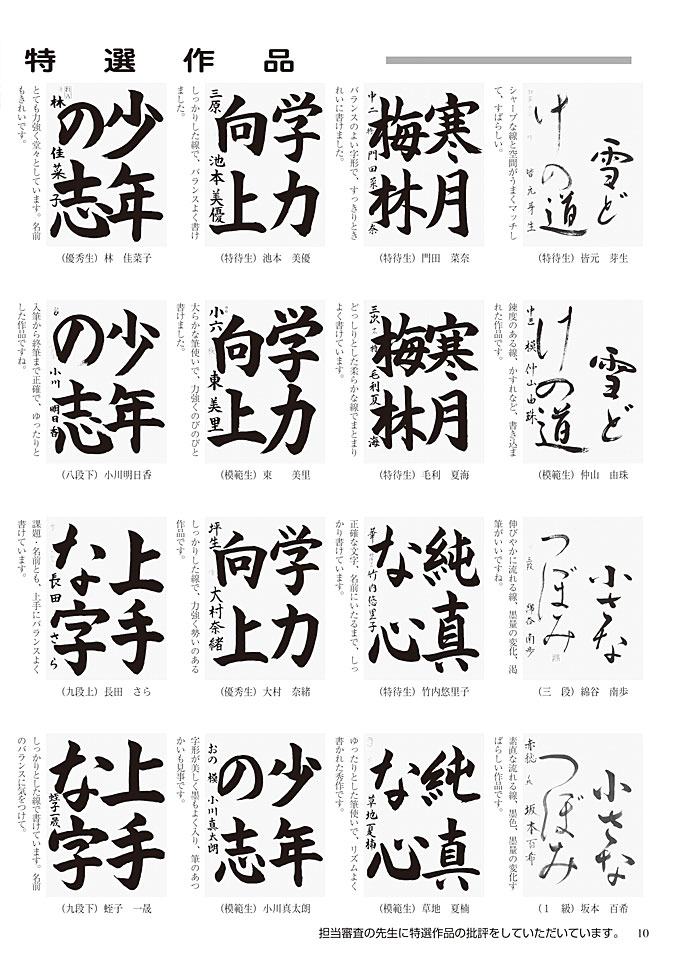 特選作品
雪ど
けの道
皆元芽生
シャープな線と空間がうまくマッチし
て、すばらしい。
（特待生）皆元　芽生
寒月
梅林
中二
門田菜奈
バランスのよい字形で、すっきりとき
れいに書けました。
（特待生）門田　菜奈
学力
向上
三原
池本美優
しっかりした線で、バランスよく書け
ました。
（特待生）池本　美優
少年
の志
林佳菜子
とても力強く堂々としています。名前
もきれいです。
（優秀生）林　佳菜子
雪ど
けの道
模仲山由珠
錬度のある線、かすれなど、書き込ま
れた作品です。
（模範生）仲山　由珠
寒月
梅林
毛利夏海
どっしりとした柔らかな線でまとまり
よく書けています。
（特待生）毛利　夏海
学力
向上
小六
東美里
大らかな筆使いで、力強くのびのびと
書けました。
（模範生）東　　美里
少年
の志
小川明日香
入筆から終筆まで正確で、ゆったりと
した作品ですね。
（八段下）小川明日香
小さな
つぼみ
綿谷南歩
伸びやかに流れる線、墨量の変化、渇
筆がいいですね。
（三　段）綿谷　南歩
純真
な心
竹内悠里子
正確な文字、名前にいたるまで、しっ
かり書けています。
（特待生）竹内悠里子
学力
向上
坪生
大村奈緒
しっかりした線で、力強く勢いのある
作品です。
（優秀生）大村　奈緒
上手
な字
長田さら
課題・名前とも、上手にバランスよく
書けています。
（九段上）長田　さら
小さな
つぼみ
坂本百希
素直な流れる線、墨色、墨量の変化す
ばらしい作品です。
（１　級）坂本　百希
純真
な心
草地夏楠
ゆったりとした筆使いで、リズムよく
書かれた秀作です。
（模範生）草地　夏楠
少年
の志
おの　模　小川真太朗
字形が美しく墨もよく入り、筆のあつ
かいも見事です。
（模範生）小川真太朗
上手
な字
蛭子一晟
しっかりとした線で書けています。名前
のバランスに気をつけて。
（九段下）蛭子　一晟
担当審査の先生に特選作品の批評をしていただいています。
10